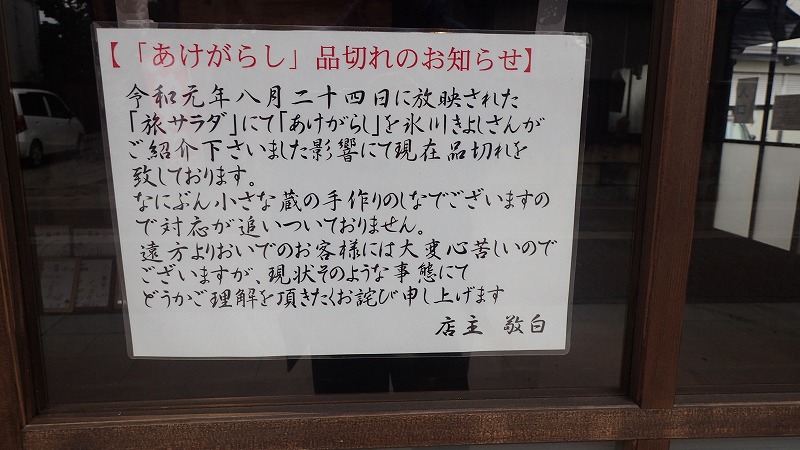 【「あけがらし」品切れのお知らせ】
令和元年八月二十四日に放映された
「旅サラダ」にて「あけがらし」を氷川きよしさんが
ご紹介下さいました影響にて現在品切れを
致しております。
なにぶん小さな蔵の手作りのしなでございますの
で対応が追いついておりません。
遠方よりおいでのお客様には大変心苦しいので
ございますが、現状そのような事態にて
どうかご理解を頂きたくお詫び申し上げます
店主 敬白